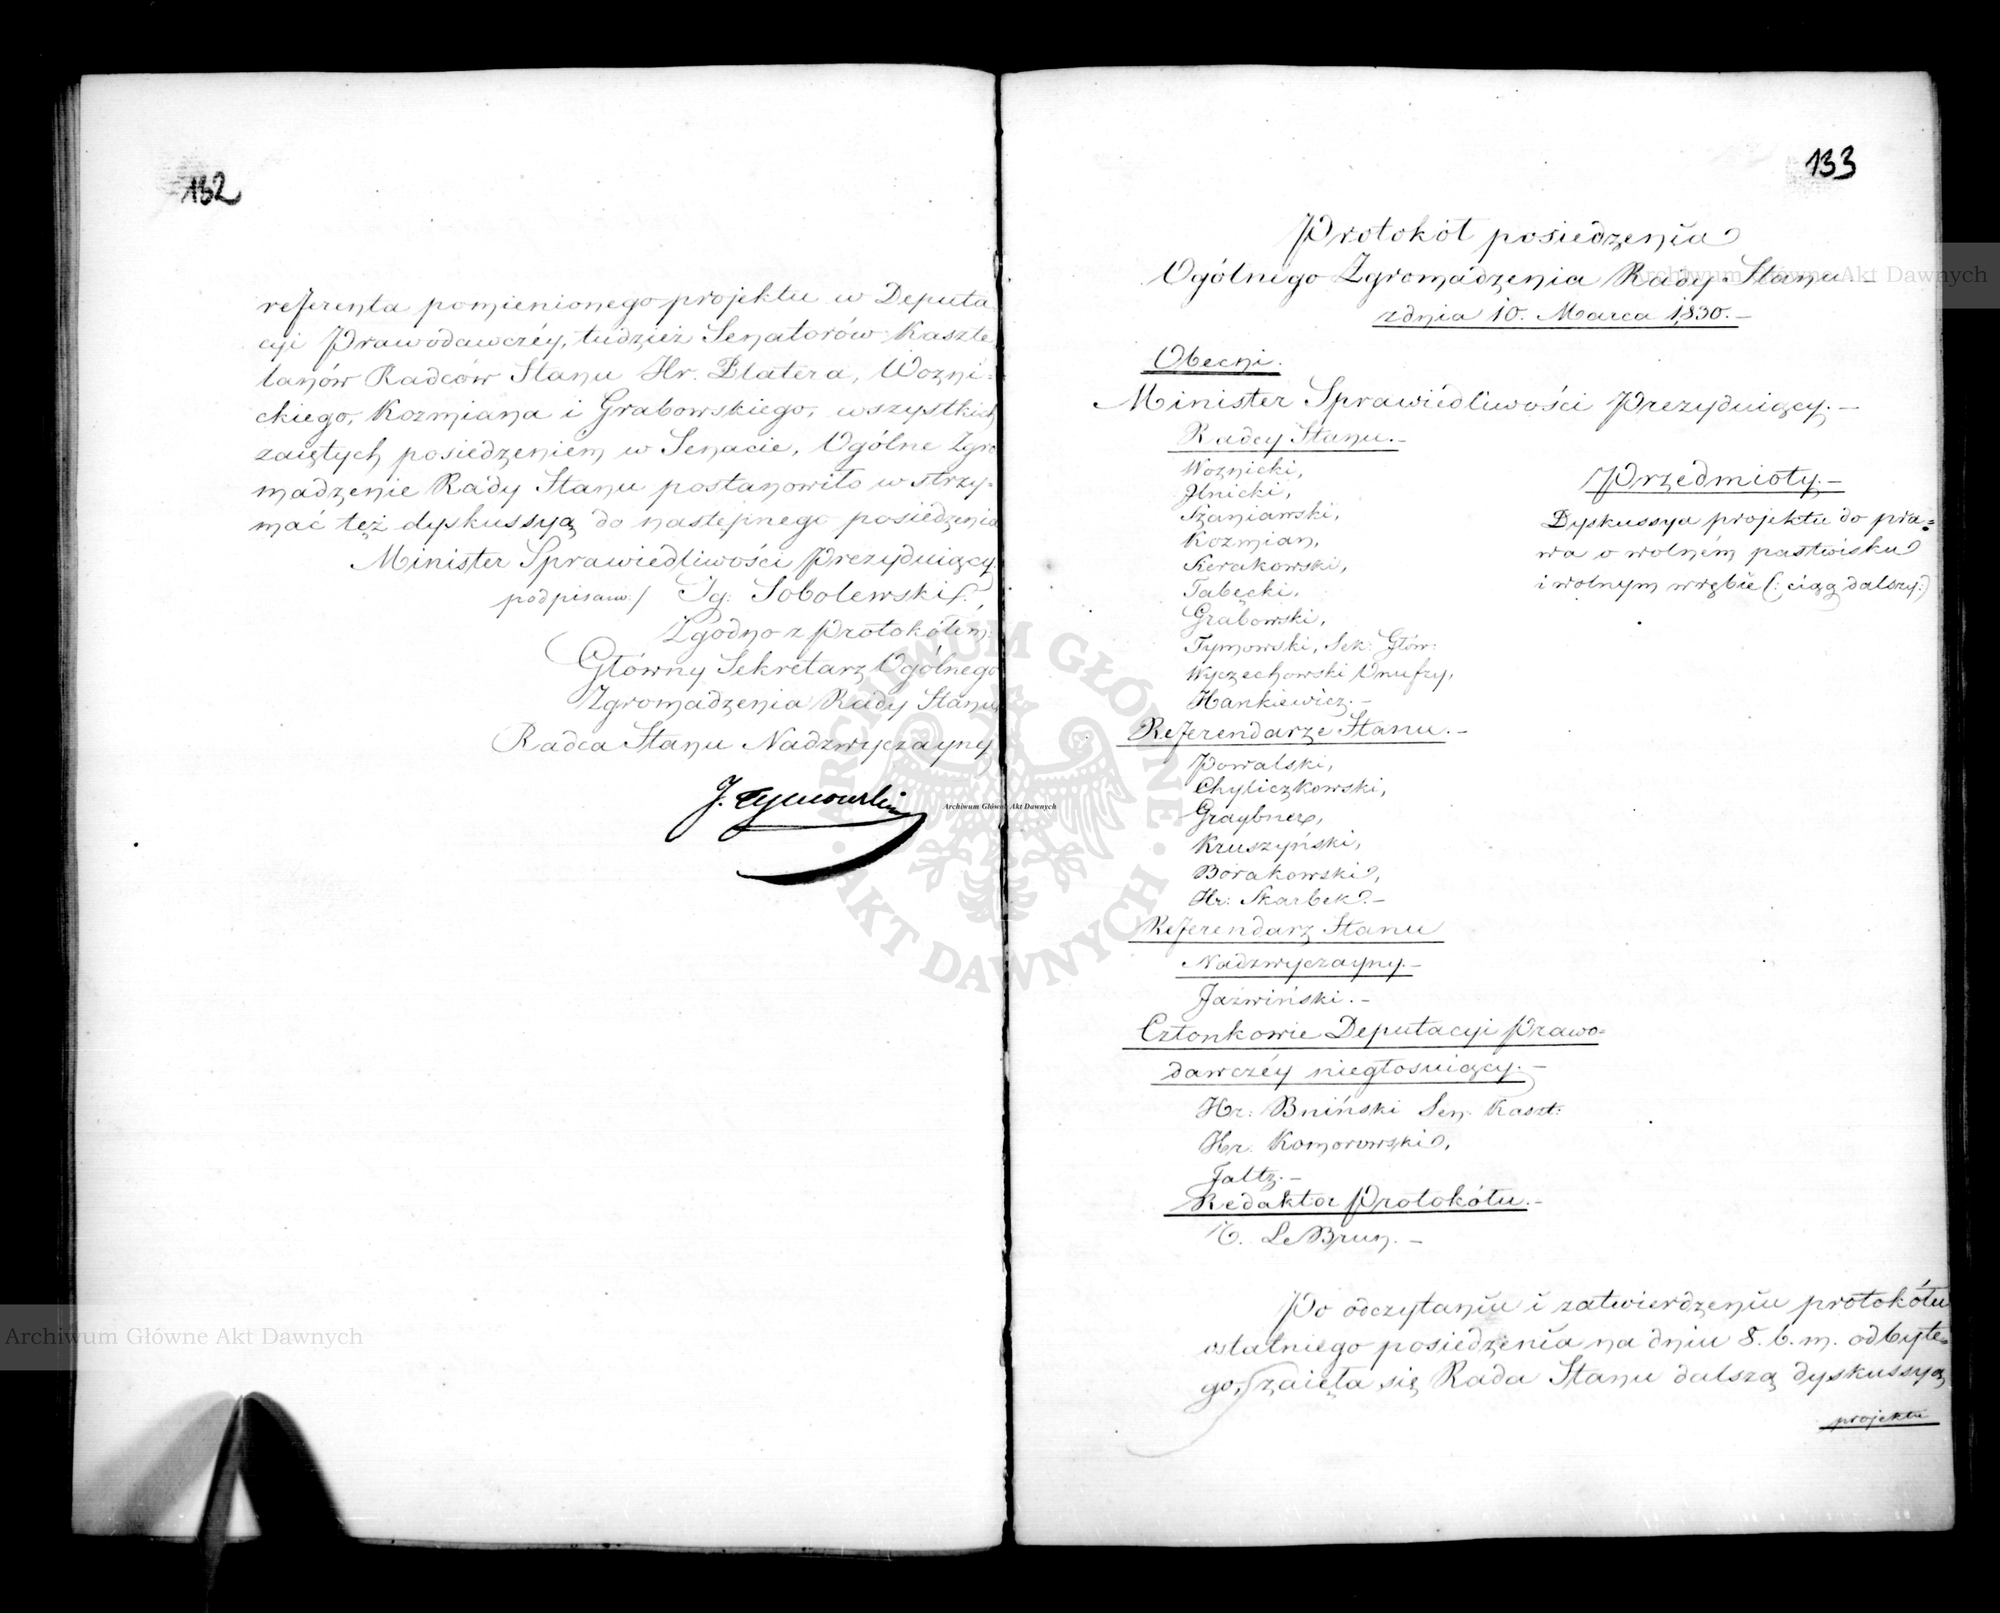 132
referenta pomienionego projektu w Deputa
cyi Prawodawczéy, tudzież Senatorów Kaszte
lanów Radców Stanu Hr. Platera, Wozni-
ckiego, Kozmiana i Grabowskiego, wszystkich
zaiętych posiedzeniem w Senacie, Ogólne Zgro
madzenie Rady Stanu postanowiło wstrzy-
mać też dyskussyą do następnego posiedzenia
Minister Sprawiedliwości Prezyduiący.
podpisano:/ Ig: Sobolewski,
Zgodno z Protokółem:
Główny Sekretarz Ogólnego
Zgromadzenia Rady Stanu
Radca Stanu Nadzwyczayny
J. Tymowski
133
Protokół posiedzenia
Ogólnego Zgromadzenia Rady Stanu.-
z dnia 10. Marca 1830.-
Obecni.
Minister Sprawiedliwości Prezyduiący.-
Radcy Stanu.-
Woznicki,
Ilnicki,
Szaniawski,
Kozmian,
Sierakowski,
Tabęcki,
Grabowski,
Tymowski, Sek: Głów:
Wyczechowski Onufry,
Hankiewicz.-
Referendarze Stanu.-
Powalski,
Chyliczkowski,
Graybner,
Kruszyński,
Borakowski,
Hr: Skarbek.-
Referendarz Stanu
Nadzwyczayny.-
Jaźwiński.-
Członkowie Deputacyi Prawo-
dawczéy niegłosuiący.-
Hr: Bniński Sen. Kaszt:
Hr. Komorowski,
Faltz.-
Redaktor Protokółu.-
LeBrun.-
Przedmioty.-
Dyskussya projektu do pra=
wa o wolném pastwisku
i wolnym wrębie (: ciąg dalszy:)
Po odczytaniu i zatwierdzeniu protokółu
ostatniego posiedzenia na dniu 8. b. m. odbyte-
go, zaięła się Rada Stanu dalszą dyskussyą
projektu
Archiwum Główne Akt Dawnych
Archiwum Główne Akt Dawnych
Archiwum Główne Akt Dawnych
ARCHIWUM GŁÓWNE · AKT DAWNYCH ·